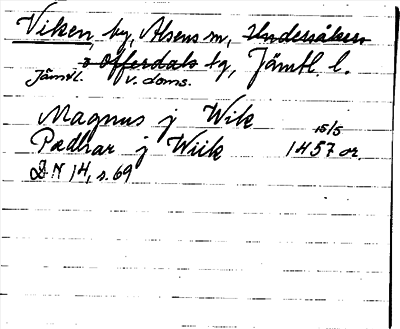 Viken, by, Alsens sn, Undersåkers
o Offerdals tg, Jämtl. l.
Jämtl. v. doms.
Magnus j Wik
Pædhar j Wiik 15/5 1457 or.
DN 14, s. 69